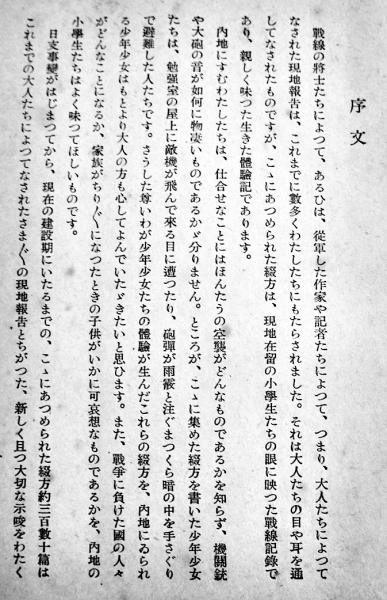 序文
戰線の將士たちによつて、あるひは、從軍した作家や記者たちによつて、つまり、大人たちによつて
なされた現地報告は、これまでに數多くわたしたちにもたらされました。それは大人たちの目や耳を通
してなされたものですが、こゝにあつめられた綴方は、現地在留の小學生たちの眼に映つた戰線記錄で
あり、親しく味つた生きた體驗記であります。
内地にすむわたしたちは、仕合せなことにはほんたうの空襲がどんなものであるかを知らず、機關銃
や大砲の音が如何に物凄いものであるかゞ分りません。ところが、こゝに集めた綴方を書いた少年少女
たちは、勉強室の屋上に敵機が飛んで來る目に遭つたり、砲彈が雨霰と注ぐまつくら暗の中を手さぐり
で避難した人たちです。さうした尊いわが少年少女たちの體驗が生んだこれらの綴方を、内地にゐられ
る少年少女はもとより大人の方も心してよんでいたゞきたいと思ひます。また、戰爭に負けた國の人々
がどんなことになるか、家族がちり〴〵になつたときの子供がいかに可哀想なものであるかを、内地の
小學生たちはよく味つてほしいものです。
日支事變がはじまつてから、現在の建設期にいたるまでの、こゝにあつめられた綴方約三百數十篇は
これまでの大人たちによつてなされたさま〴〵の現地報告とちがつた、新しく且つ大切な示唆をわたく